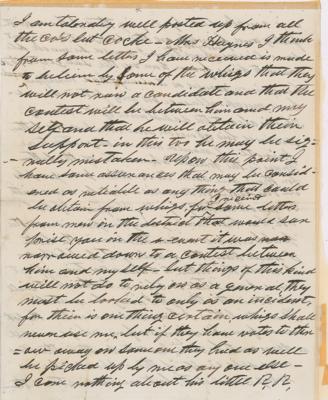 I am tolerably well posted up from all
the Co's but Cocke - Mrs Haynes I think
from some letters I have received is made
to believe by some of the whigs that they
will not run a candidate and that the
contest will be between him and my
self and that he will obtain their
support - in this too he may be sig-
nally mistaken - Upon this point I
have some assurances that may be consid-
ered as reliable as any thing that could
be obtain from whigs, for some letters
from men in the district that would sur
prise you in the event it was
narrowed down to a contest between
him and myself - but things of this kind
will not do to rely on as a general, they
must be looked to only as an incident,
for there is one thing certain whigs shall
never use me, but if they have votes to thr
ow away on some one they had as well
be picked up by me as any one else -
I care nothing about his little R. R.